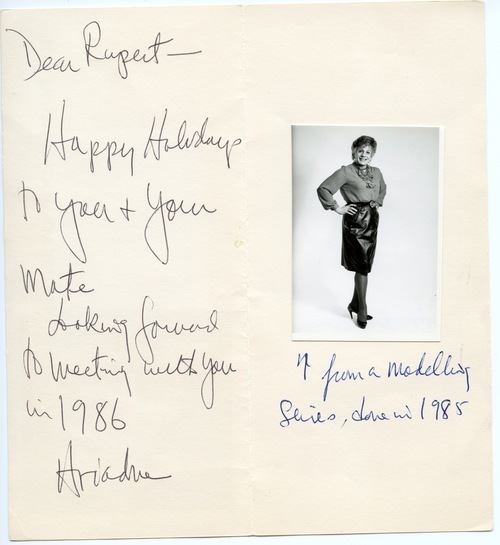 Dear Rupert —
Happy Holidays
to you + Your
Mate
Looking forward
to meeting with You
in 1986
Ariadne
↑ from a modelling
Series, done in 1985